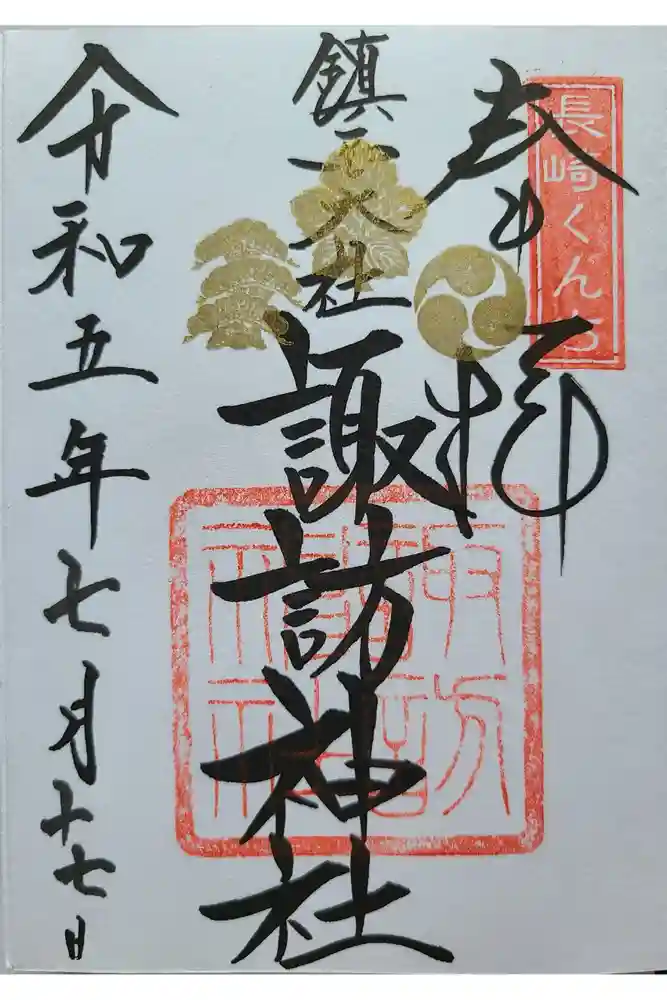 長崎くんち
奉拝
鎮西大社
諏訪神社
諏訪神社
令和五年七月十七日